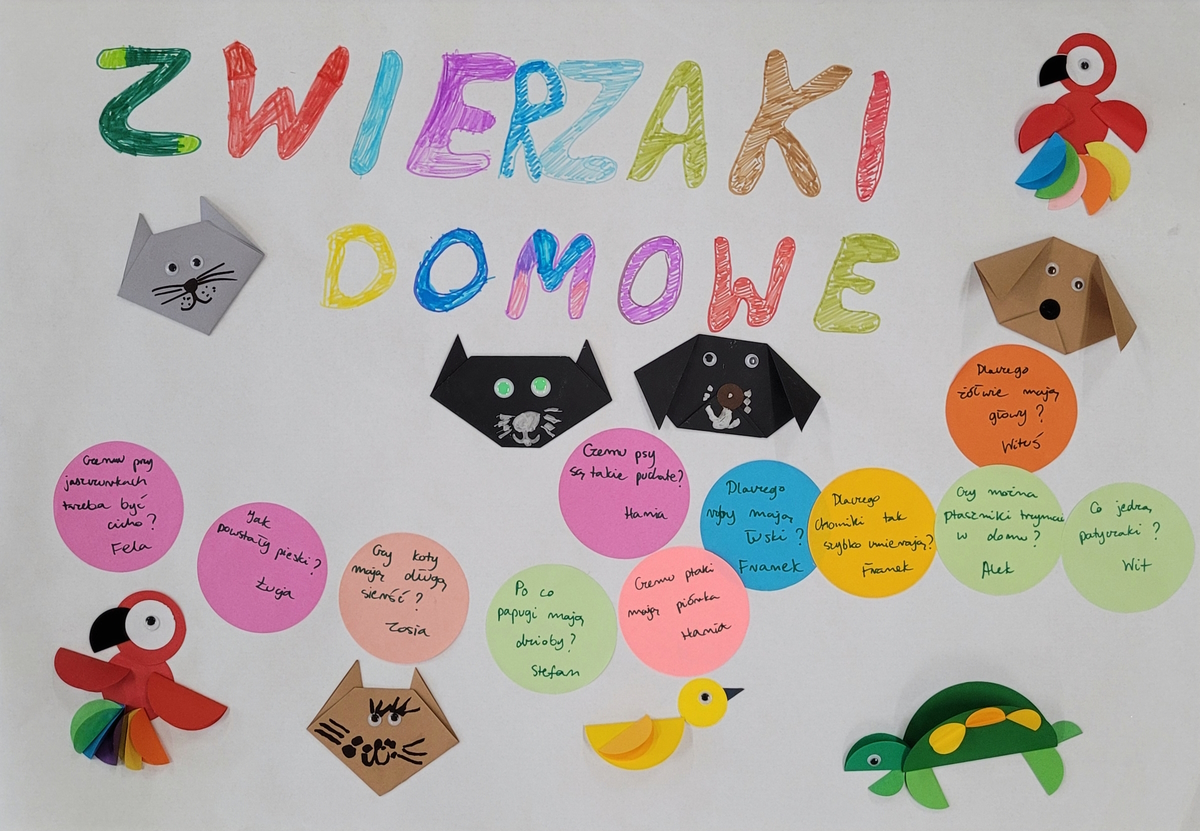 ZWIERZAKI
DOMOWE
Dlaczego
żółwie mają
głowy?
Wituś
Czemu przy
jaszczurkach
trzeba być
cicho?
Fela
Jak
powstały pieski?
Zuja
Czy koty
mają długą
sierść?
Zosia
Po co
papugi mają
dzioby?
Stefan
Czemu psy
są takie puchate?
Hania
Czemu ptaki
mają piórka
Hania
Dlaczego
ryby mają
łuski?
Franek
Dlaczego
chomiki tak
szybko umierają?
Franek
Czy można
ptaszniki trzymać
w domu?
Alek
Co jedzą
patyczaki?
Wit